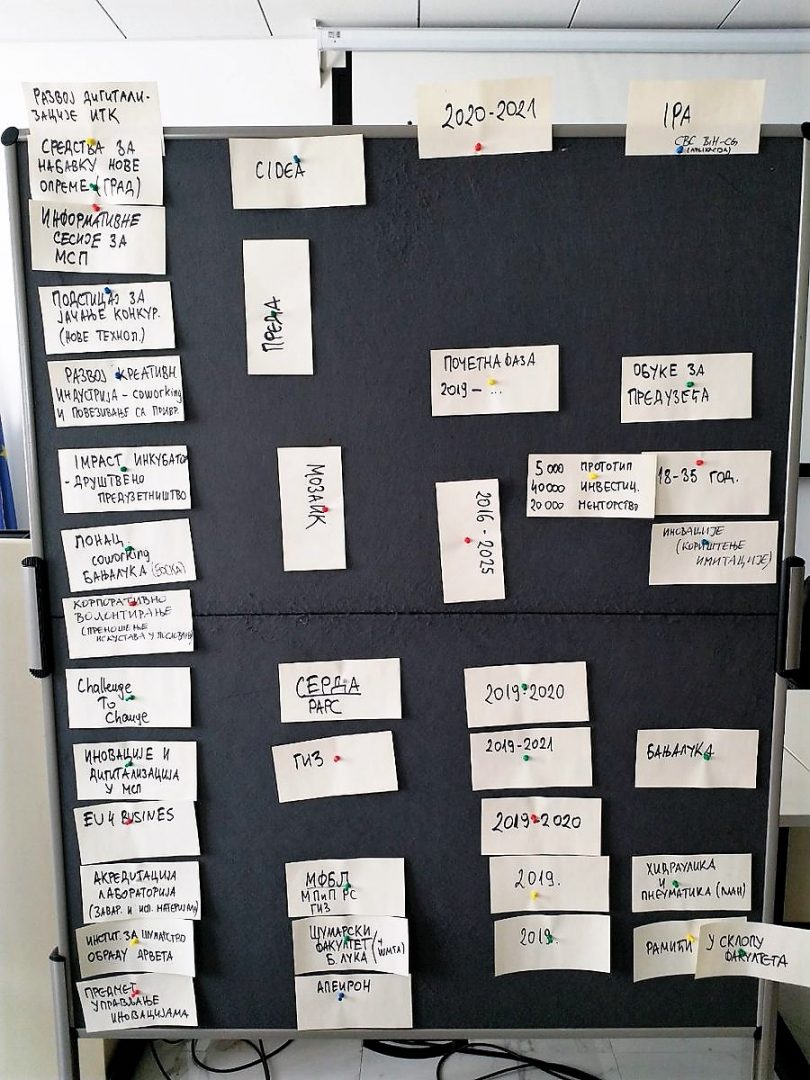 РАЗВОЈ ДИГИТАЛИ-
ЗАЦИЈЕ ИТК
СРЕДСТВА ЗА
НАБАВКУ НОВЕ
ОПРЕМЕ (ГРАД)
ИНФОРМАТИВНЕ
СЕСИЈЕ ЗА
МСП
CIDEA
2020-2021
IPA
CBC BIH-
ПОДСТИЦАЈ ЗА
ЈАЧАЊЕ КОНКУР.
(НОВЕ ТЕХНОЛ.)
ПРЕДА
РАЗВОЈ КРЕАТИВН.
ИНДУСТРИЈА - coworking
И ПОВЕЗИВАЊЕ СА ПРИВР.
ПОЧЕТНА ФАЗА
2019- ...
ОБУКЕ ЗА
ПРЕДУЗЕЋА
IMPACT ИНКУБАТОР
- ДРУШТВЕНО
ПРЕДУЗЕТНИШТВО
МОЗАИК
2016-2025
5000 ПРОТОТИП
40000 ИНВЕСТИЦ.
20000 МЕНТОРСТВО
18-35 ГОД.
ИНОВАЦИЈЕ
(КОРИШТЕЊЕ
ИМИТАЦИЈЕ)
coworking
БАЊАЛУКА
КОРПОРАТИВНО
ВОЛОНТИРАЊЕ
(ПРЕНОШЕЊЕ
ИСКУСТАВА У ПОСЛОВАЊУ)
Challenge
To
Change
СЕРДА
РАРС
2019-2020
ИНОВАЦИЈЕ И
ДИГИТАЛИЗАЦИЈА
У МСП
ГИЗ
2019-2021
БАЊАЛУКА
EU4 BUSINES
2019-2020
АКРЕДИТАЦИЈА
ЛАБОРАТОРИЈА
(ЗАВАР. И ИСП. МАТЕРИЈАЛА)
МФБЛ
МПиП РС
ГИЗ
2019.
ХИДРАУЛИКА
И
ПНЕУМАТИКА (ПЛАН)
ИНСТИТ. ЗА ШУМАРСТВО
ОБРАДУ ДРВЕТА
ШУМАРСКИ
ФАКУЛТЕТ
Б. ЛУКА
2019
РАМИЋИ
У СКЛОПУ
ФАКУЛТЕТА
ПРЕДМЕТ
УПРАВЉАЊЕ
ИНОВАЦИЈАМА
АПЕИРОН